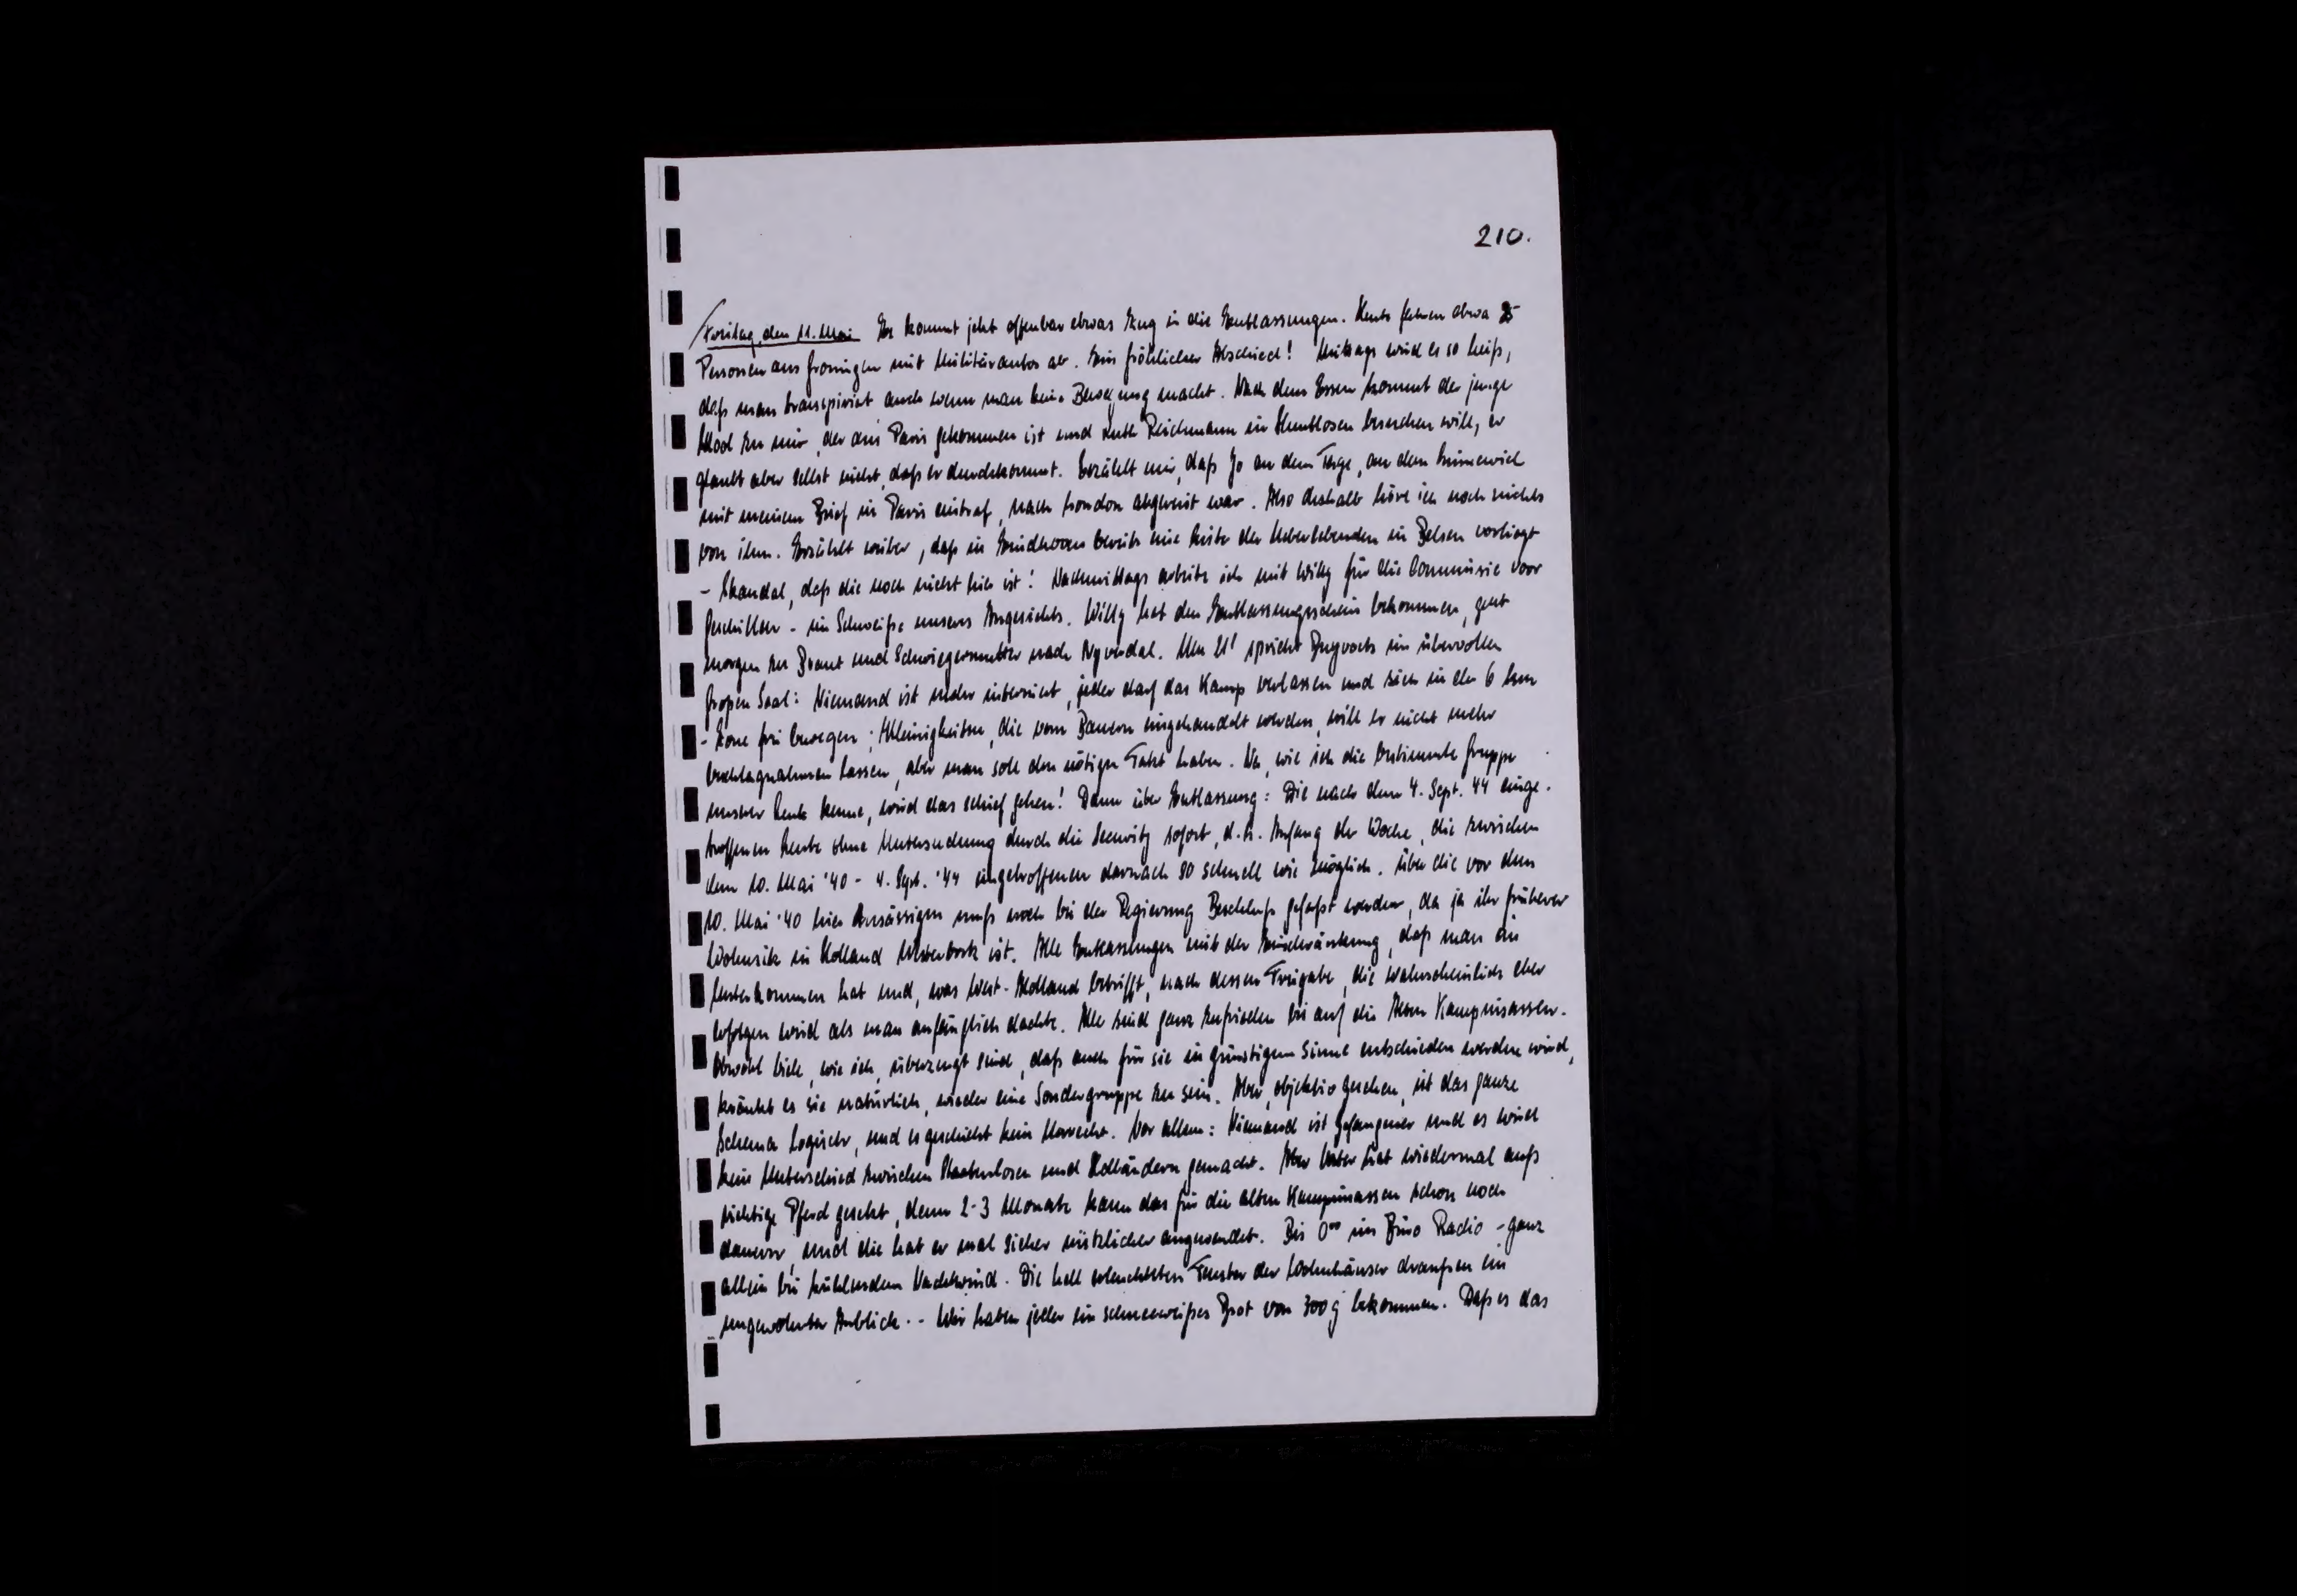 210.
Freitag, den 11. Mai Es kommt jetzt offenbar etwas Zug in die Entlassungen. Heute fahren etwa 25
Personen aus Groningen mit Militärautos ab. Ein fröhlicher Abschied! Mittags wird es so heiß,
daß man transpiriert auch wenn man keine Bewegung macht. Nach dem Essen kommt der junge
zu mir, der aus Paris gekommen ist und Ruth Reichmann in besuchen will, er
glaubt aber selbst nicht, daß er durchkommt. Erzählt mir, daß Jo an dem Tage, an dem
mit meinem Brief in Paris eintraf, nach London abgereist war. Also deshalb höre ich noch nichts
von ihm. Erzählt weiter, daß in Eindhoven bereits eine Liste der Ueberlebenden in Belsen vorliegt
- Skandal, daß die noch nicht hier ist! Nachmittags arbeite ich mit Willy für die Commissie voor
Geschillen - im Schweiße unseres Angesichts. Willy hat den Entlassungsschein bekommen, geht
morgen zu Braut und Schwiegermutter nach Nyverdal. Um 21' spricht im übervollen
großen Saal: Niemand ist mehr interniert, jeder darf das Kamp verlassen und sich in der 6 km
- Zone frei bewegen; Kleinigkeiten, die vom Bauern eingehandelt werden, will er nicht mehr
beschlagnahmen lassen, aber man soll den nötigen Takt haben. Na, wie ich die bestimmte Gruppe
unserer Leute kenne, wird das schief gehen! Dann über Entlassung: Die nach dem 4. Sept. 44 einge-
troffenen Leute ohne Untersuchung durch die Security sofort, d.h. Anfang der Woche, die zwischen
dem 10. Mai '40 - 4. Sept. '44 eingetroffenen darnach so schnell wie möglich. Über die vor dem
10. Mai '40 hier Ansässigen muß noch bei der Regierung Beschluß gefaßt werden, da ja ihr früherer
Wohnsitz in Holland Westerbork ist. Alle Entlassungen mit der Einschränkung, daß man ein
Unterkommen hat und, was West-Holland betrifft, nach dessen Freigabe, die wahrscheinlich eher
erfolgen wird als man anfänglich dachte. Alle sind ganz zufrieden bis auf die Alten Kampinsassen.
Obwohl viele, wie ich, überzeugt sind, daß auch für sie in günstigem Sinne entschieden werden wird,
kränkt es sie natürlich, wieder eine Sondergruppe zu sein. Aber, objektiv gesehen, ist das ganze
Schema logisch, und es geschieht kein Unrecht. Vor allem: Niemand ist Gefangener und es wird
kein Unterschied zwischen Staatenlosen und Holländern gemacht. Aber Vater hat wiedermal aufs
richtige Pferd gesetzt, denn 2-3 Monate kann das für die alten Kampinsassen schon noch
dauern, und die hat er mal sicher nützlicher angewendet. Bis 0°° im Büro Radio - ganz
allein bei kühlendem Nachtwind. Die hell erleuchteten Fenster der Wohnhäuser draußen ein
ungewohnter Anblick. - Wir haben jeder ein schneeweißes Brot von 300 g bekommen. Daß es das